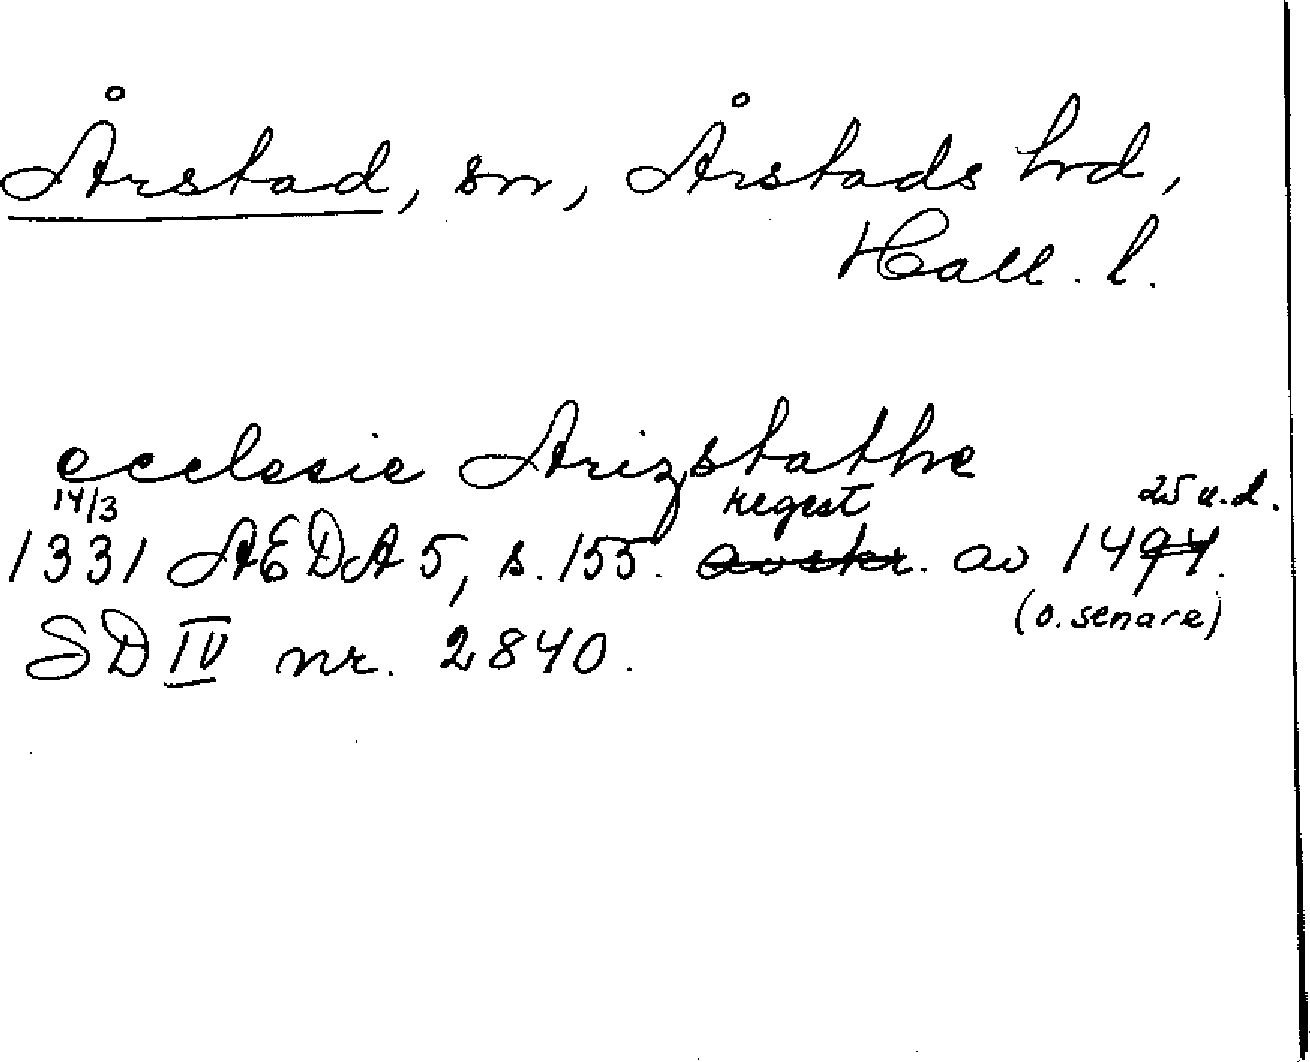 Årstad, sn, Årstads hd,
Hall. l.
ecclesie Arizstathe
14/3 regest 25 u.d.
1331 AEDA 5, s. 155. avskr. av 1494.
(o. senare)
SD IV nr. 2840.